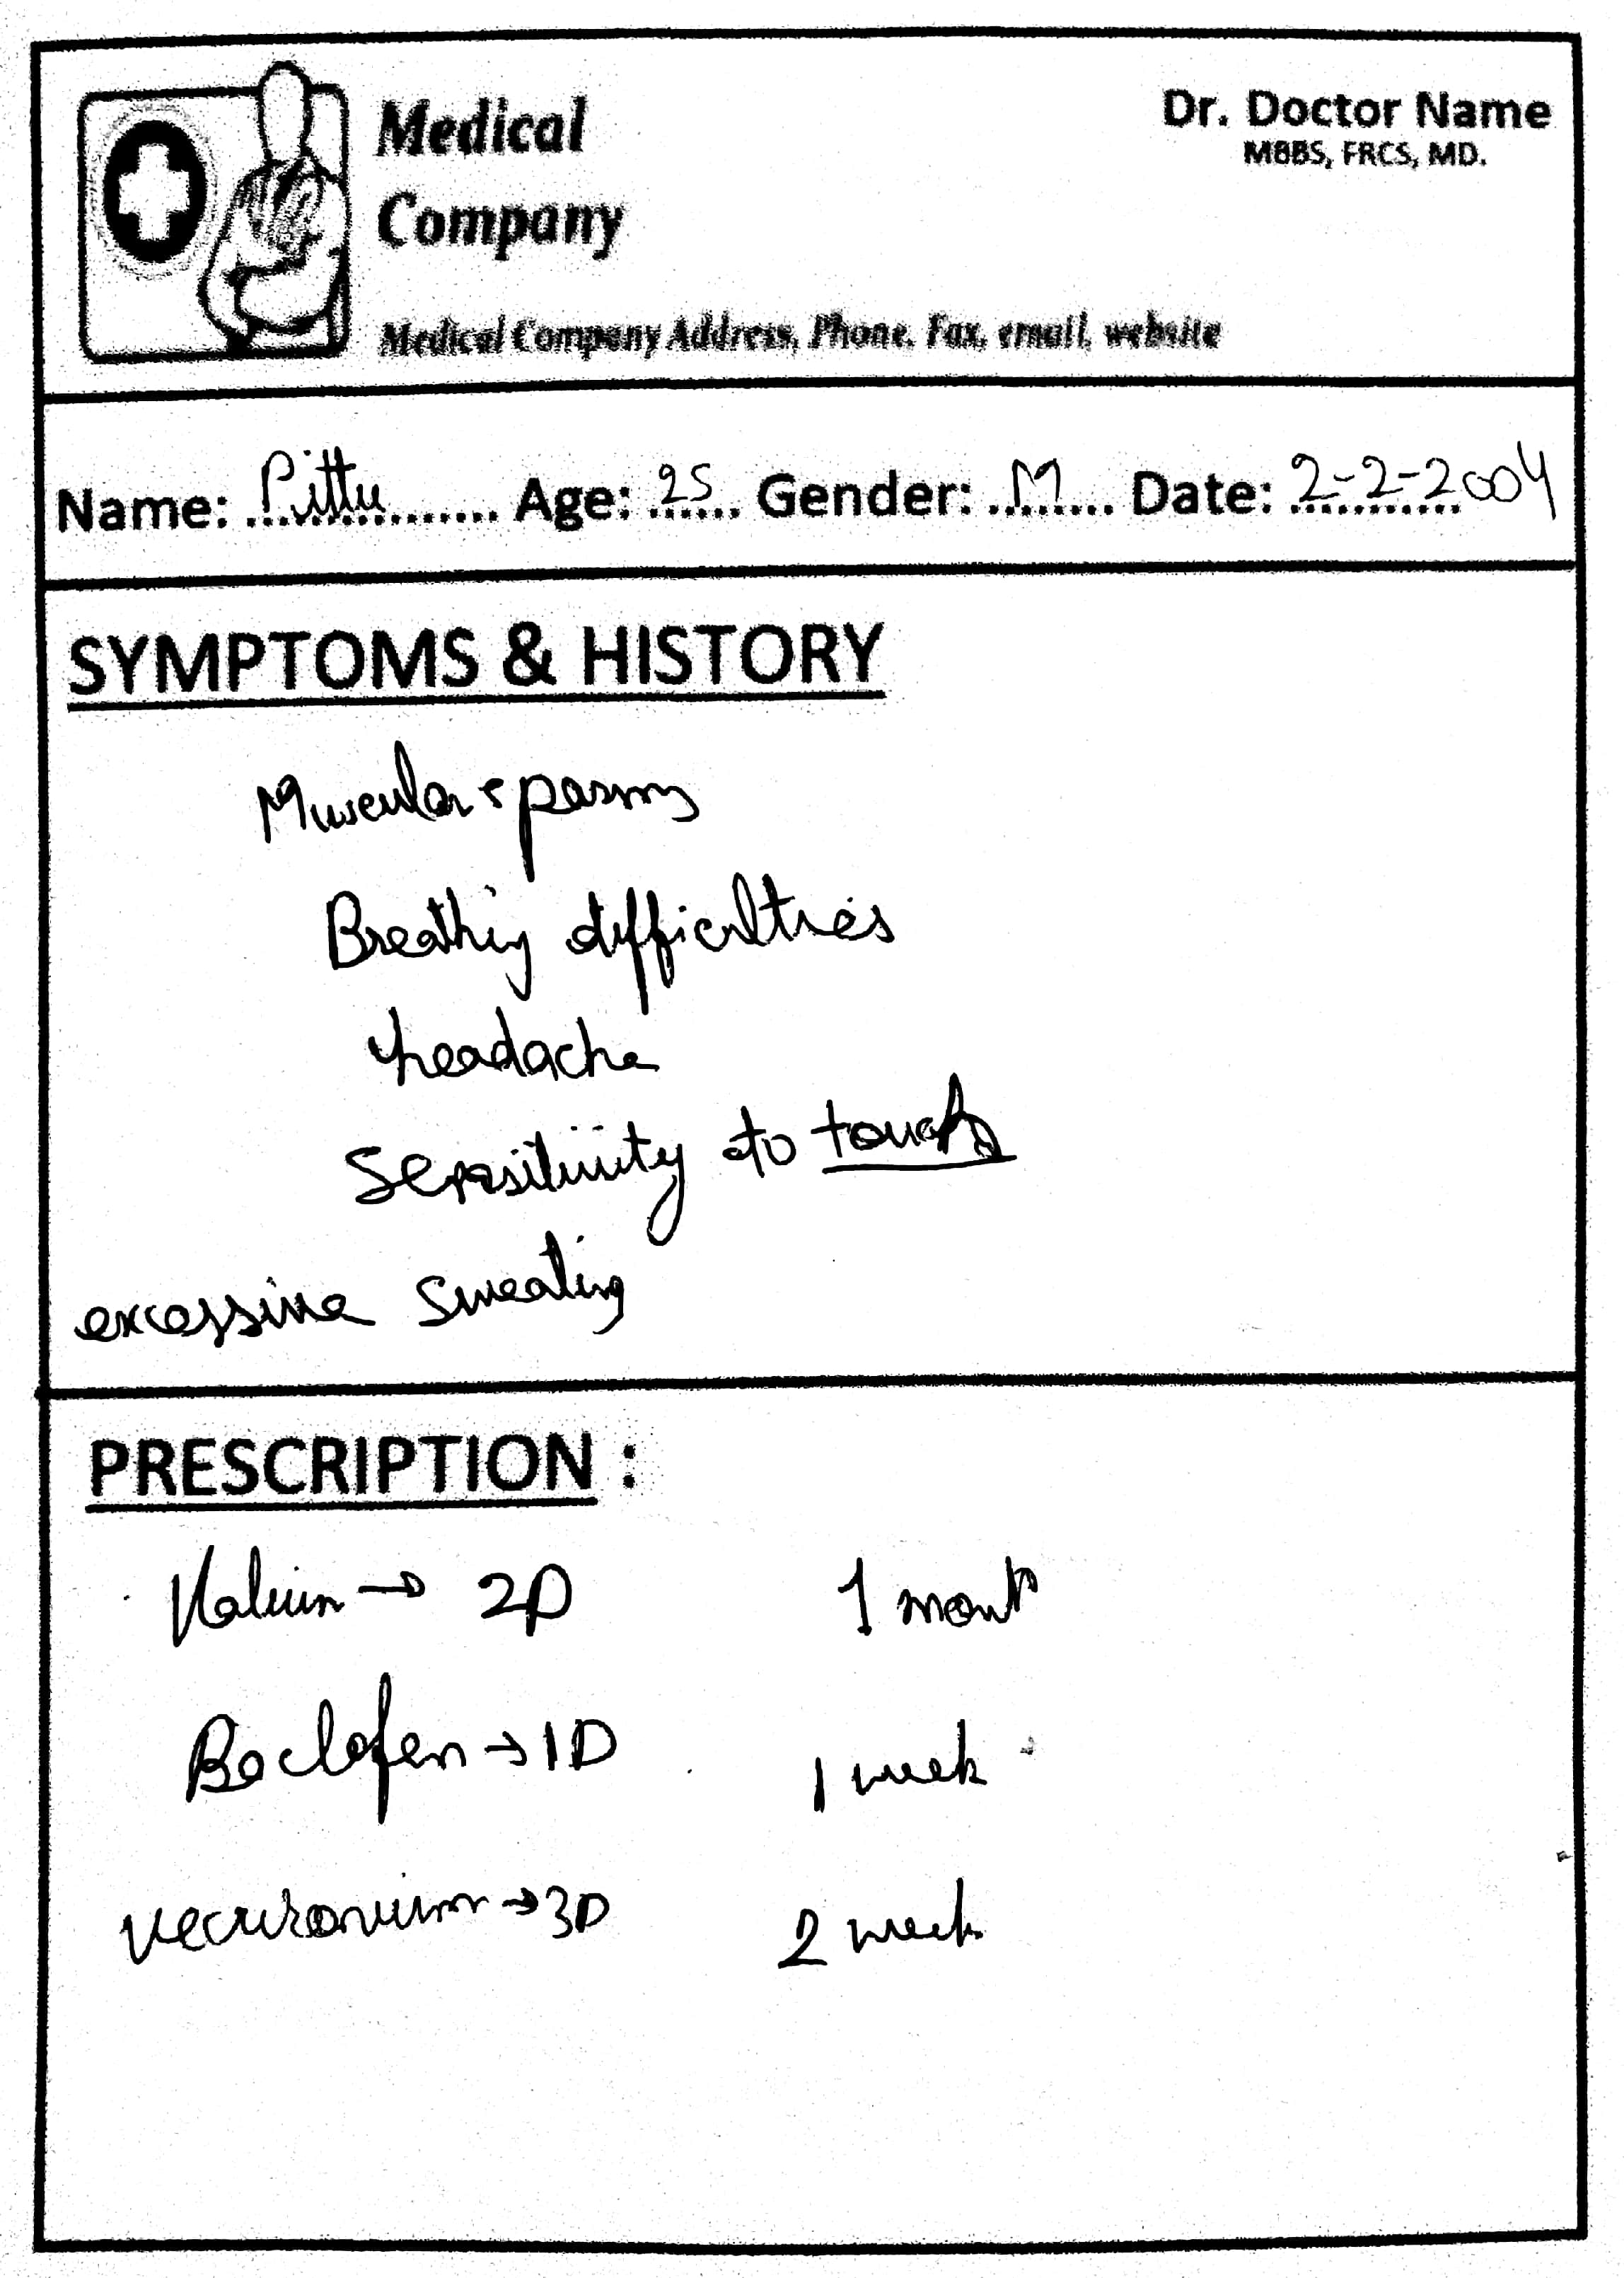 Medical
Company
Dr. Doctor Name
MBBS, FRCS, MD.
Medical Company Address, Phone, Fax, email, website
Name: Pittu Age: 25 Gender: M Date: 2-2-2004
SYMPTOMS & HISTORY
Muscular spasms
Breathing difficulties
headache
Sensitivity to touch
excessive sweating
PRESCRIPTION :
Valium → 2D 1 month
Baclofen → 1D 1 week
vecuronium → 3D 2 week